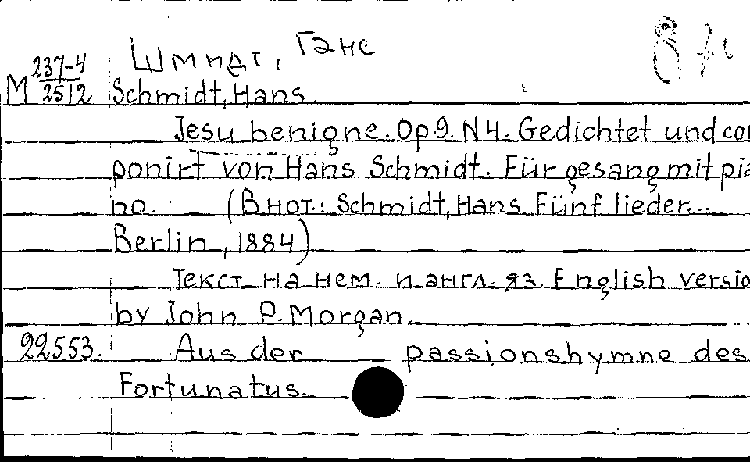 Шмидт, Ганс
М 237-4
2512
Schmidt, Hans.
Jesu benigne. Op. 9. N 4. Gedichtet und com
ponirt von Hans Schmidt. Für gesang mit pia
no. (В нот.: Schmidt, Hans. Fünf lieder...
Berlin, 1884)
Текст на нем. и англ. яз. English versio
by John P. Morgan.
22553. Aus der passionshymne des
Fortunatus.